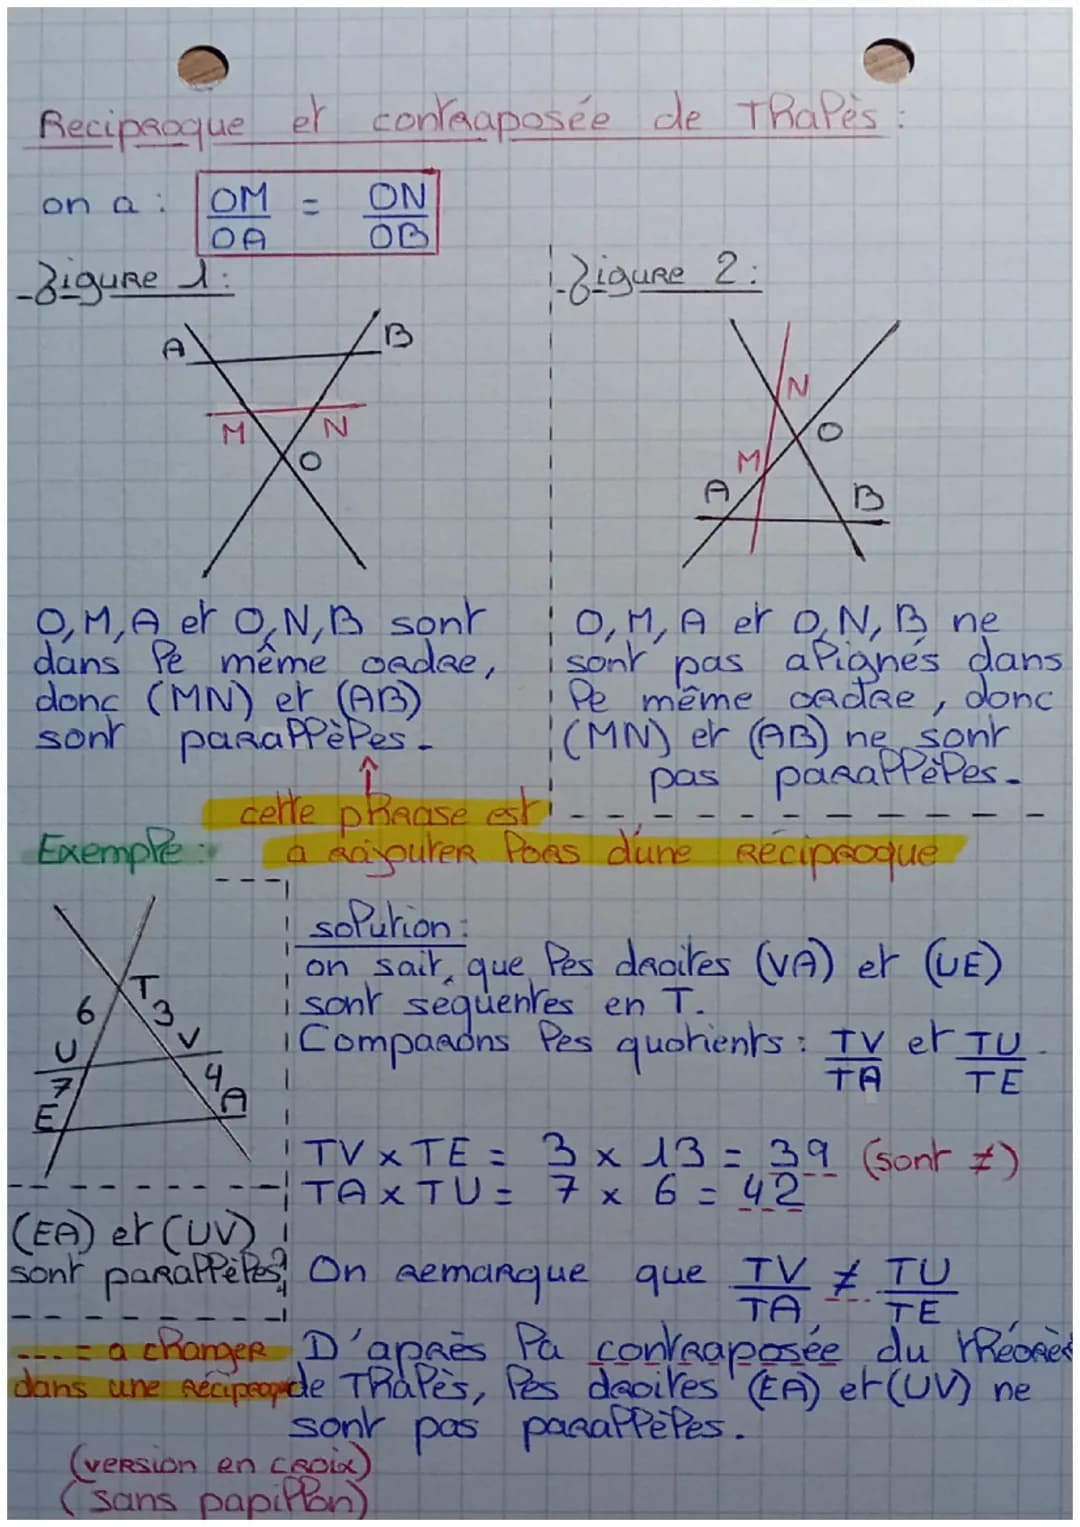 Reciproque et contraposée de Thalès :
on a : OM/OA = ON/OB
-figure 1 :
A
B
M
N
O
O, M, A et O, N, B sont
dans le même ordre,
donc (MN) et (AB)
sont parallèles.
-figure 2 :
N
O
M
A
B
O, M, A et O, N, B ne
sont pas alignés dans
le même ordre, donc
(MN) et (AB) ne sont
pas parallèles.
cette phrase est
a rajouter lors d'une réciproque
Exemple :
T
6
3
U
V
7
4
E
A
(EA) et (UV)
sont parallèles?
solution :
on sait que les droites (VA) et (UE)
sont séquentes en T.
Comparons les quotients : TV/TA et TU/TE.
TV x TE = 3 x 13 = 39 (sont ≠)
TA x TU = 7 x 6 = 42
On remarque que TV/TA ≠ TU/TE
D'après la contraposée du théorè
de Thalès, les droites (EA) et (UV) ne
sont pas parallèles.
--- = a changer
dans une réciproque
(version en croix)
(sans papillon)